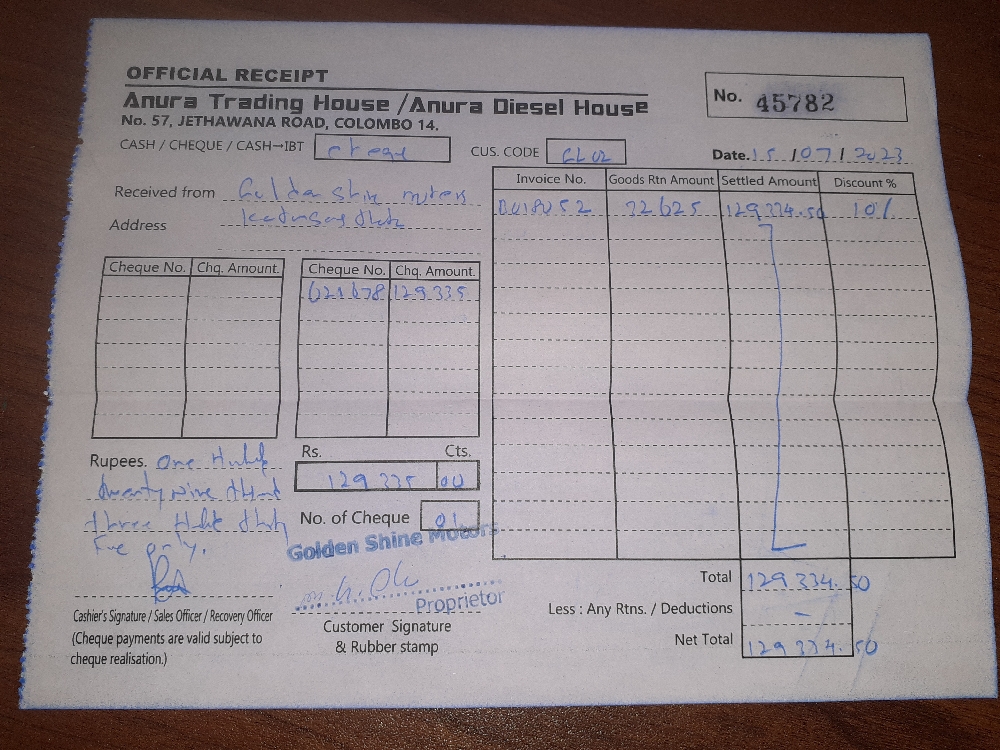 OFFICIAL RECEIPT
Anura Trading House / Anura Diesel House
No. 57, JETHAWANA ROAD, COLOMBO 14.
No. 45782
CASH / CHEQUE / CASH→IBT
CUS. CODE
Date. 15 / 07 / 2023
Received from Golden Shine
Address
Invoice No. Goods Rtn Amount Settled Amount Discount %
32625 129334.50 10%
Cheque No. Chq. Amount. Cheque No. Chq. Amount.
621678 129335
Rupees. One
twenty nine
three
Five only.
Rs. Cts.
129335 00
No. of Cheque 01
Golden Shine Motors
Proprietor
Cashier's Signature / Sales Officer / Recovery Officer
(Cheque payments are valid subject to
cheque realisation.)
Customer Signature
& Rubber stamp
Total 129334.50
Less : Any Rtns. / Deductions -
Net Total 129334.50